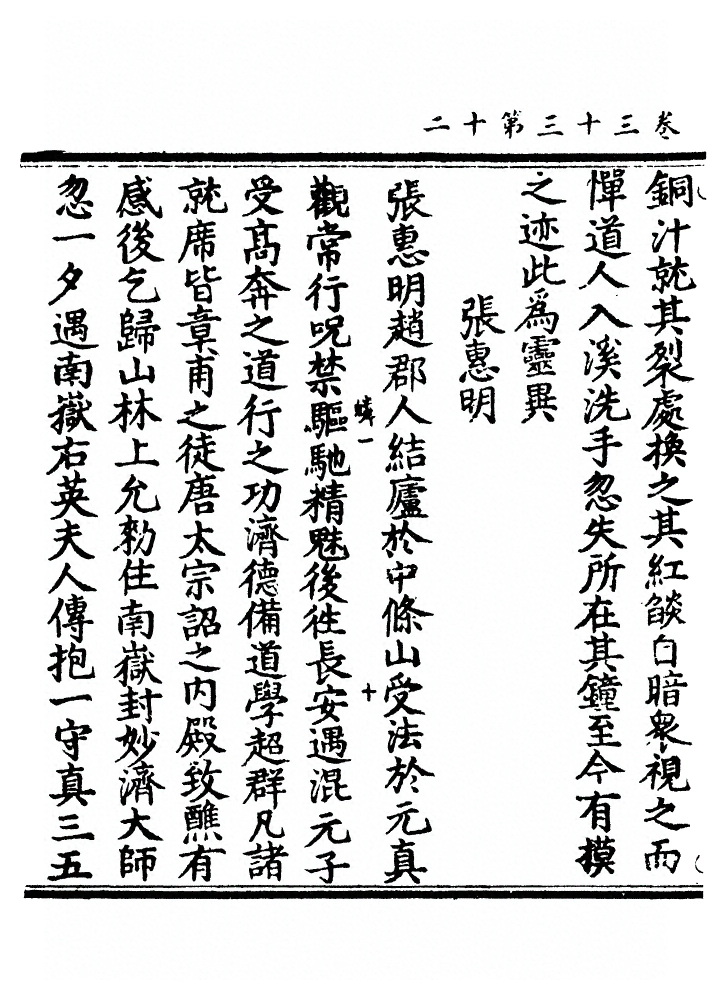 卷三十三第十二
銅汁就其裂處換之其紅燄白暗衆視之而
憚道人入溪洗手忽失所在其鐘至今有摸
之迹此爲靈異
張惠明
張惠明趙郡人結廬於中條山受法於元真
觀常行呪禁驅馳精魅後徃長安遇混元子
受髙奔之道行之功濟德備道學超群凡諸
就席皆章甫之徒唐太宗詔之内殿致醮有
感後乞歸山林上允勑住南嶽封妙濟大師
忽一夕遇南嶽右英夫人傳抱一守真三五
十